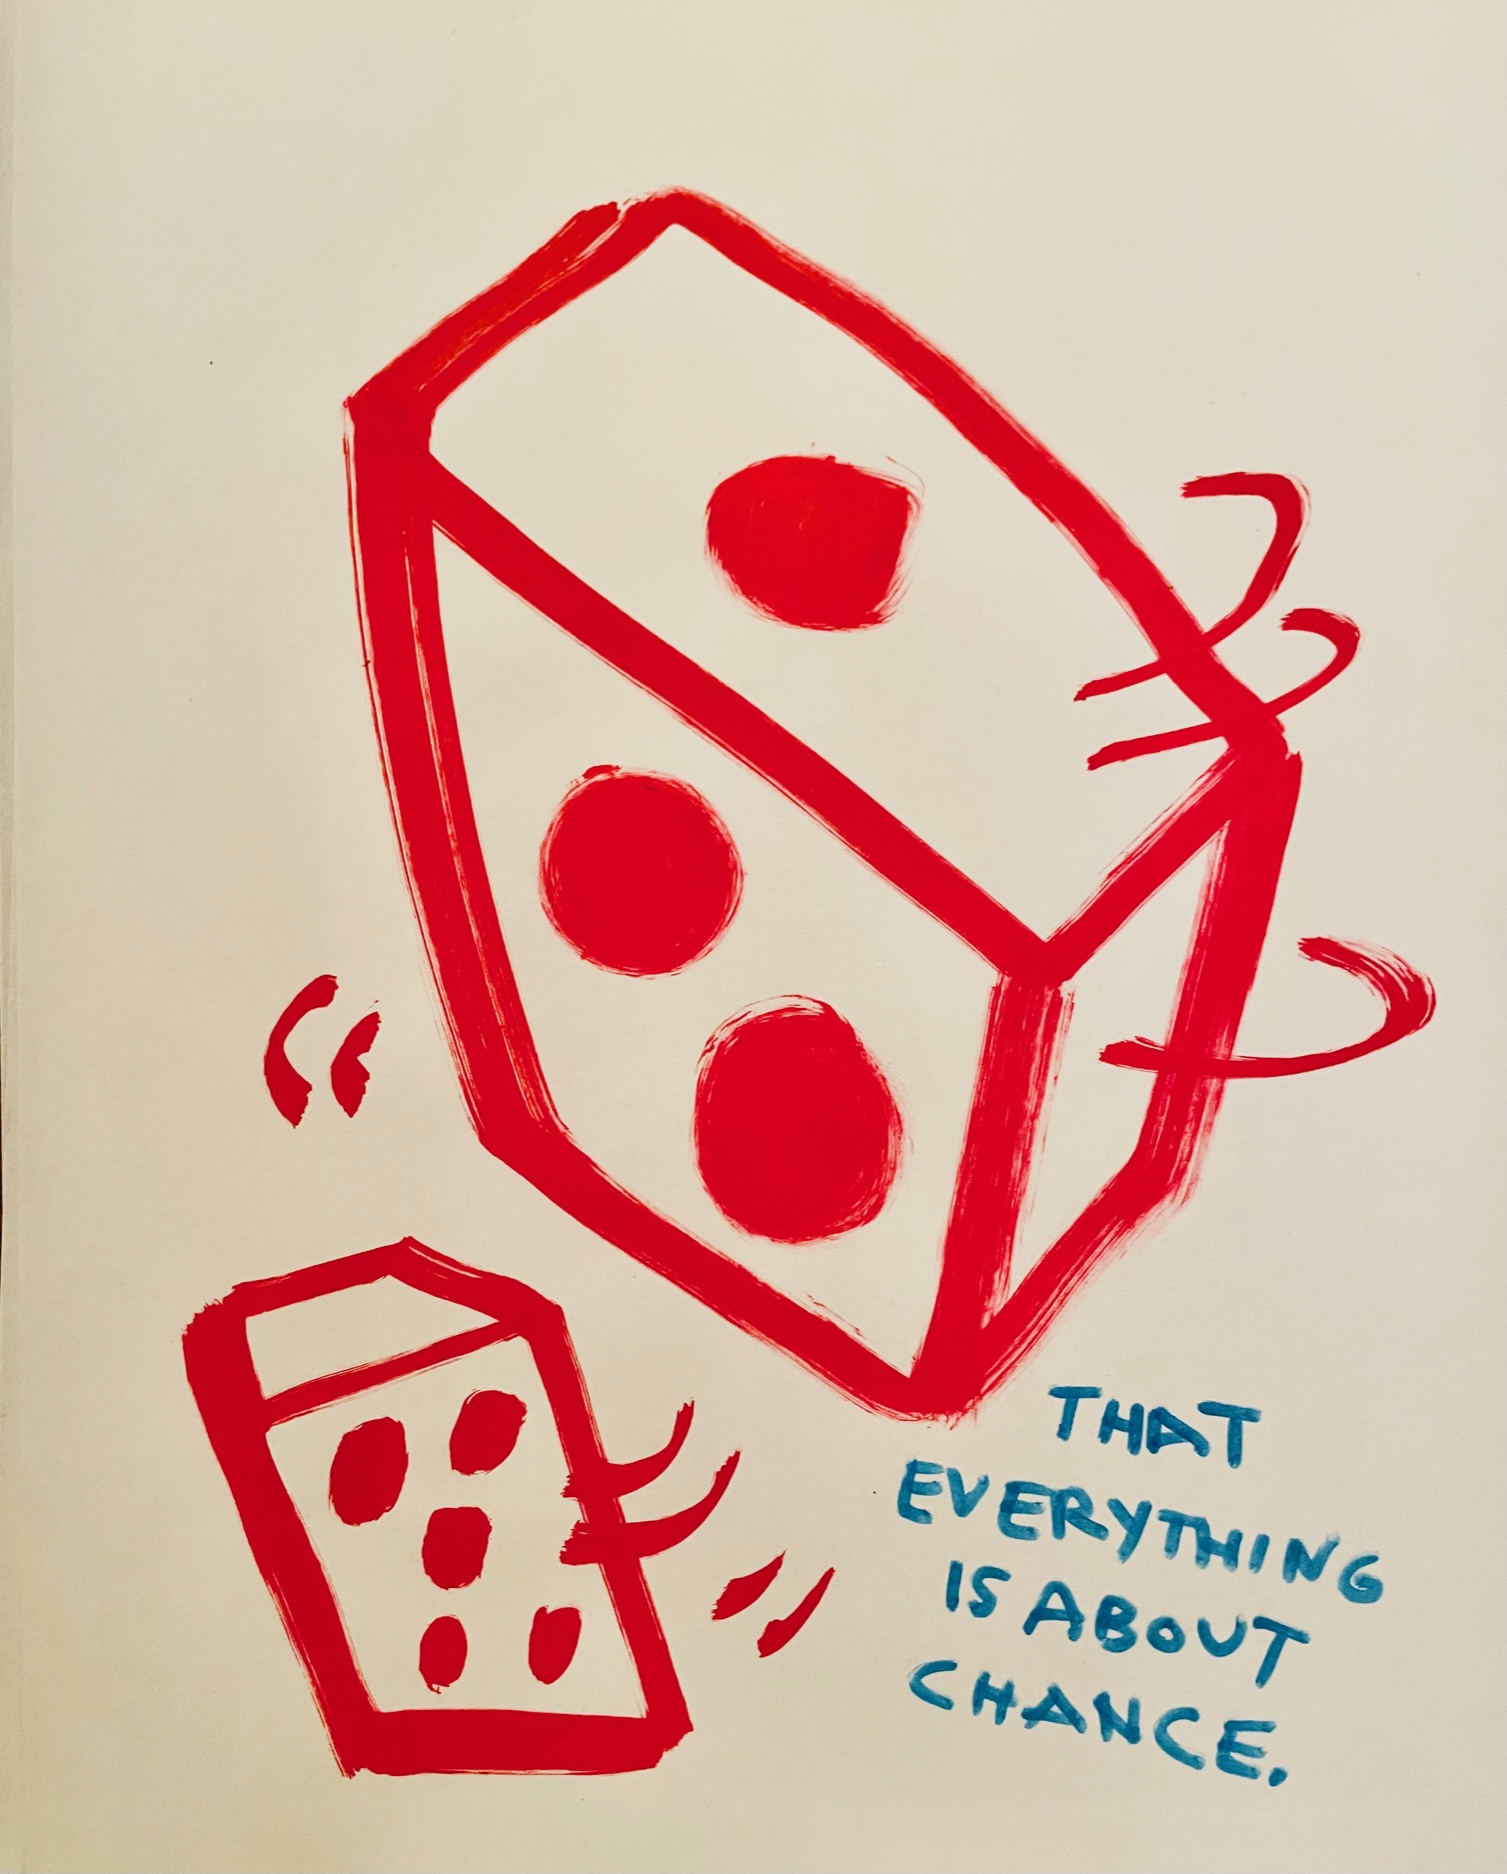 THAT
EVERYTHING
IS ABOUT
CHANCE.